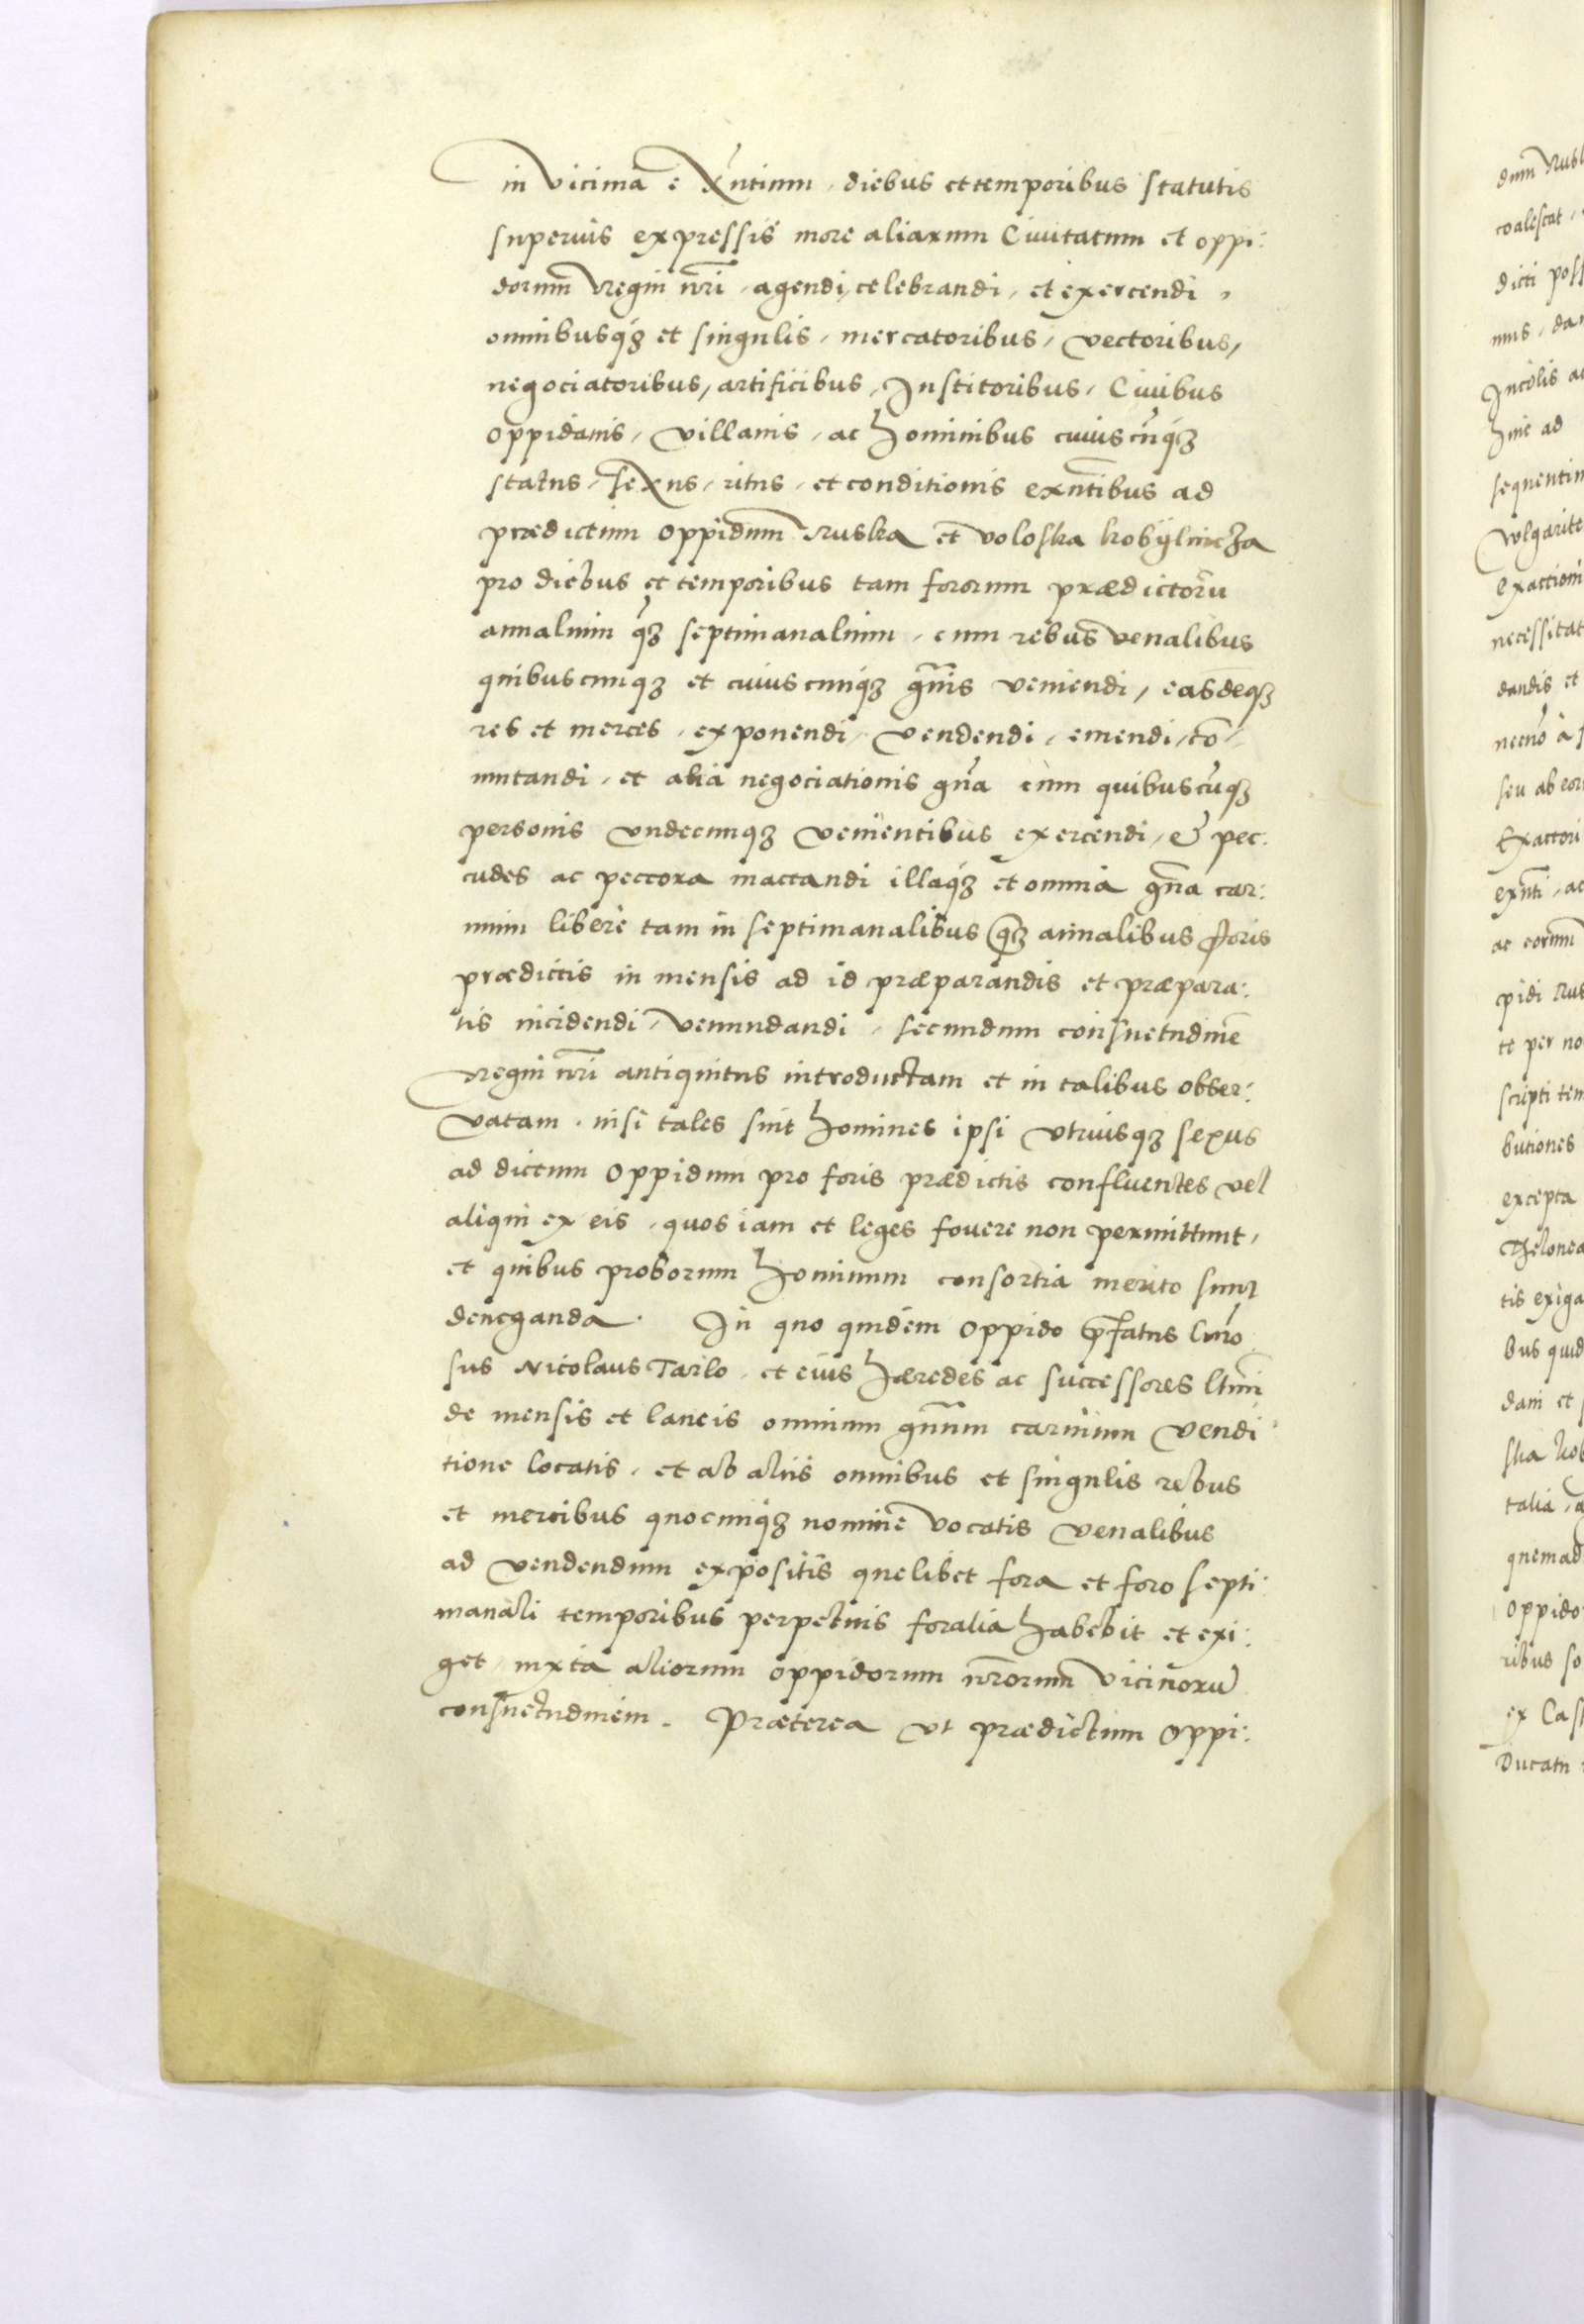 in vicima exn̄tium, diebus et temporibus statutis
superius expressis more aliarum Civitatum et oppi:
dorum Regni nr̄i, agendi, celebrandi, et exercendi,
omnibusqȝ et singulis, mercatoribus, vectoribus,
negociatoribus, artificibus, Institoribus, Civibus
oppidanis, villanis, ac hominibus cuiuscūqȝ
status, sexus, ritus, et conditionis exn̄tibus ad
prædictum oppidum Ruska et voloska kobÿlnicza
pro diebus et temporibus tam fororum prædictorū
annalium qȝ septimanalium, cum rebus venalibus
quibuscunqȝ et cuiuscunqȝ gn̄is veniendi, easdeqȝ
res et merces, exponendi, vendendi, emendi, cō
mutandi, et alia negociationis gn̄a cum quibuscūqȝ
personis undecunqȝ venientibus exercendi, & pec:
cudes ac peccora mactandi illaqȝ et omnia gn̄a car:
nium liberè tam in septimanalibus qȝ annalibus foris
prædictis in mensis ad id præparandis et præpara:
tis incidendi, venundandi, secundum consuetudinē
Regni nr̄i antiquitus introductam et in talibus obser:
vatam, nisi tales sint homines ipsi utriusqȝ sexus
ad dictum oppidum pro foris prædictis confluentes vel
aliqui ex eis, quos iam et leges fovere non permittunt,
et quibus proborum hominum consortia merito sunt
deneganda. In quo quidem oppido p̄fatus Gnro
sus Nicolaus Tarlo, et eius hæredes ac successores ltīmi
de mensis et laneis omnium gn̄um carnium vendi
tione locatis, et ab aliis omnibus et singulis rebus
et mercibus quocunqȝ nomine vocatis venalibus
ad vendendum expositis quelibet fora et foro septi:
manali temporibus perpetuis foralia habebit et exi:
get, iuxta aliorum oppidorum nr̄orum vicinorū
consuetudinem. Præterea ut prædictum oppi:
coalescat,
dicti poss
nus, da
Incolis ac
hinc ad
sequentin
exactioni
necessitat
dandis et
seu ab eor
Exactori
exn̄ti, ac
ac eorum
pidi Rus
te per no
scripti tem
butiones
excepta
Thelonea
tis exiga
bus quid
dam et
ska kob
talia, a
quemad
oppido
ribus so
ex Cas
Ducatu